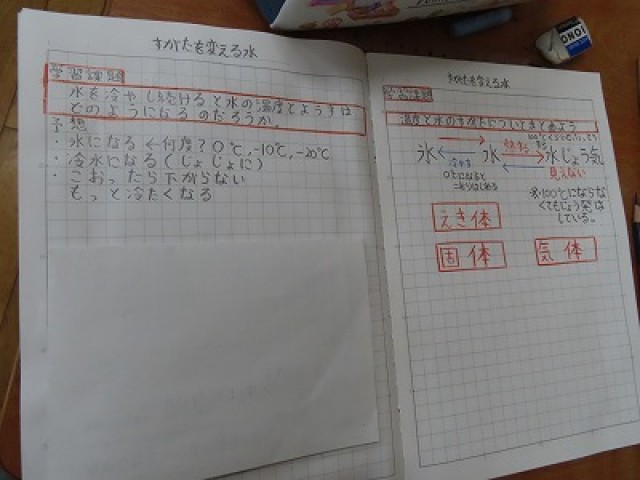 すがたを変える水
学習課題
水を冷やし続けると水の温度とようすは
どのようになるのだろうか。
予想
・氷になる ← 何度? 0℃, -10℃, -20℃
・冷水になる(じょじょに)
・こおったら下がらない
もっと冷たくなる
すがたを変える水
学習課題
温度と水のすがたについてまとめよう
氷 水 水じょう気
冷やす
見えない
0℃になると
こおりはじめる
※100℃にならな
くてもじょう発は
している。
えき体
固体 気体